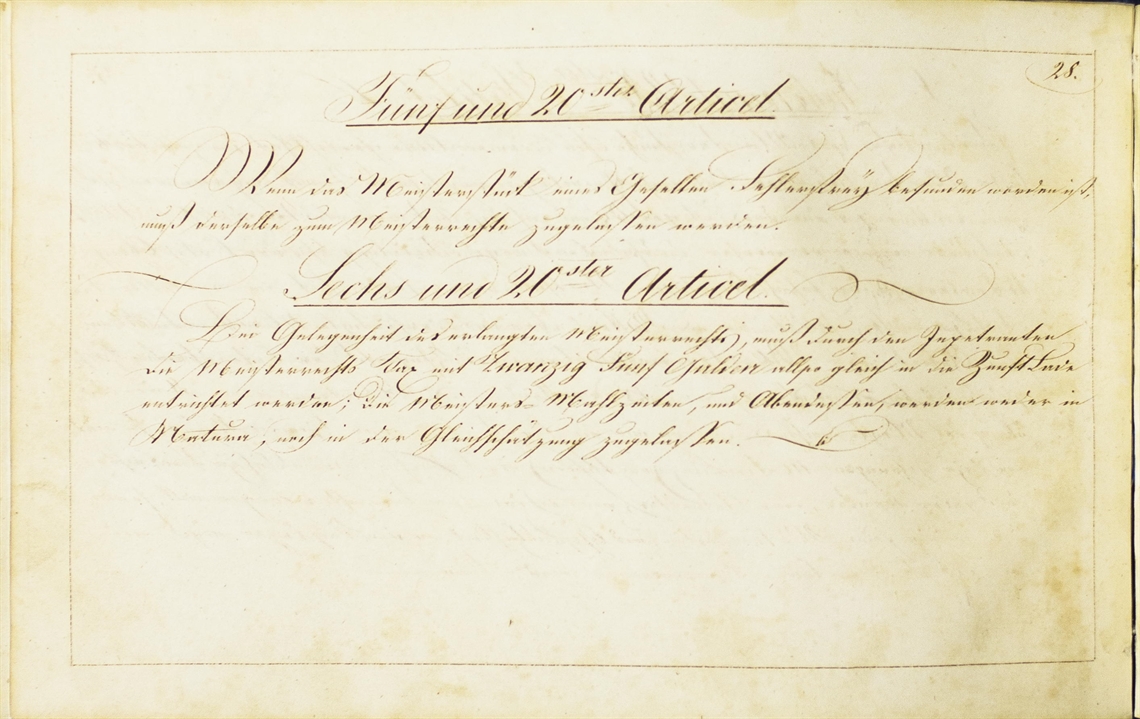 28.
Fünf und 20ster Articel.
Wenn das Meisterstück eines Gesellen Fehlersfrey befunden worden ist,
muß derselbe zum Meisterrechte zugelassen werden.
Sechs und 20ster Articel.
Bei Gelegenheit des erlangten Meisterrechts, muß durch den Impetranten
die Meisterrechts Tax mit Zwanzig Fünf Gulden allso gleich in die Zunft Lade
entrichtet werden; die Meisters-Mahlzeiten, und Abendessen, werden weder in
Natura, noch in der Gleichschätzung zugelassen.